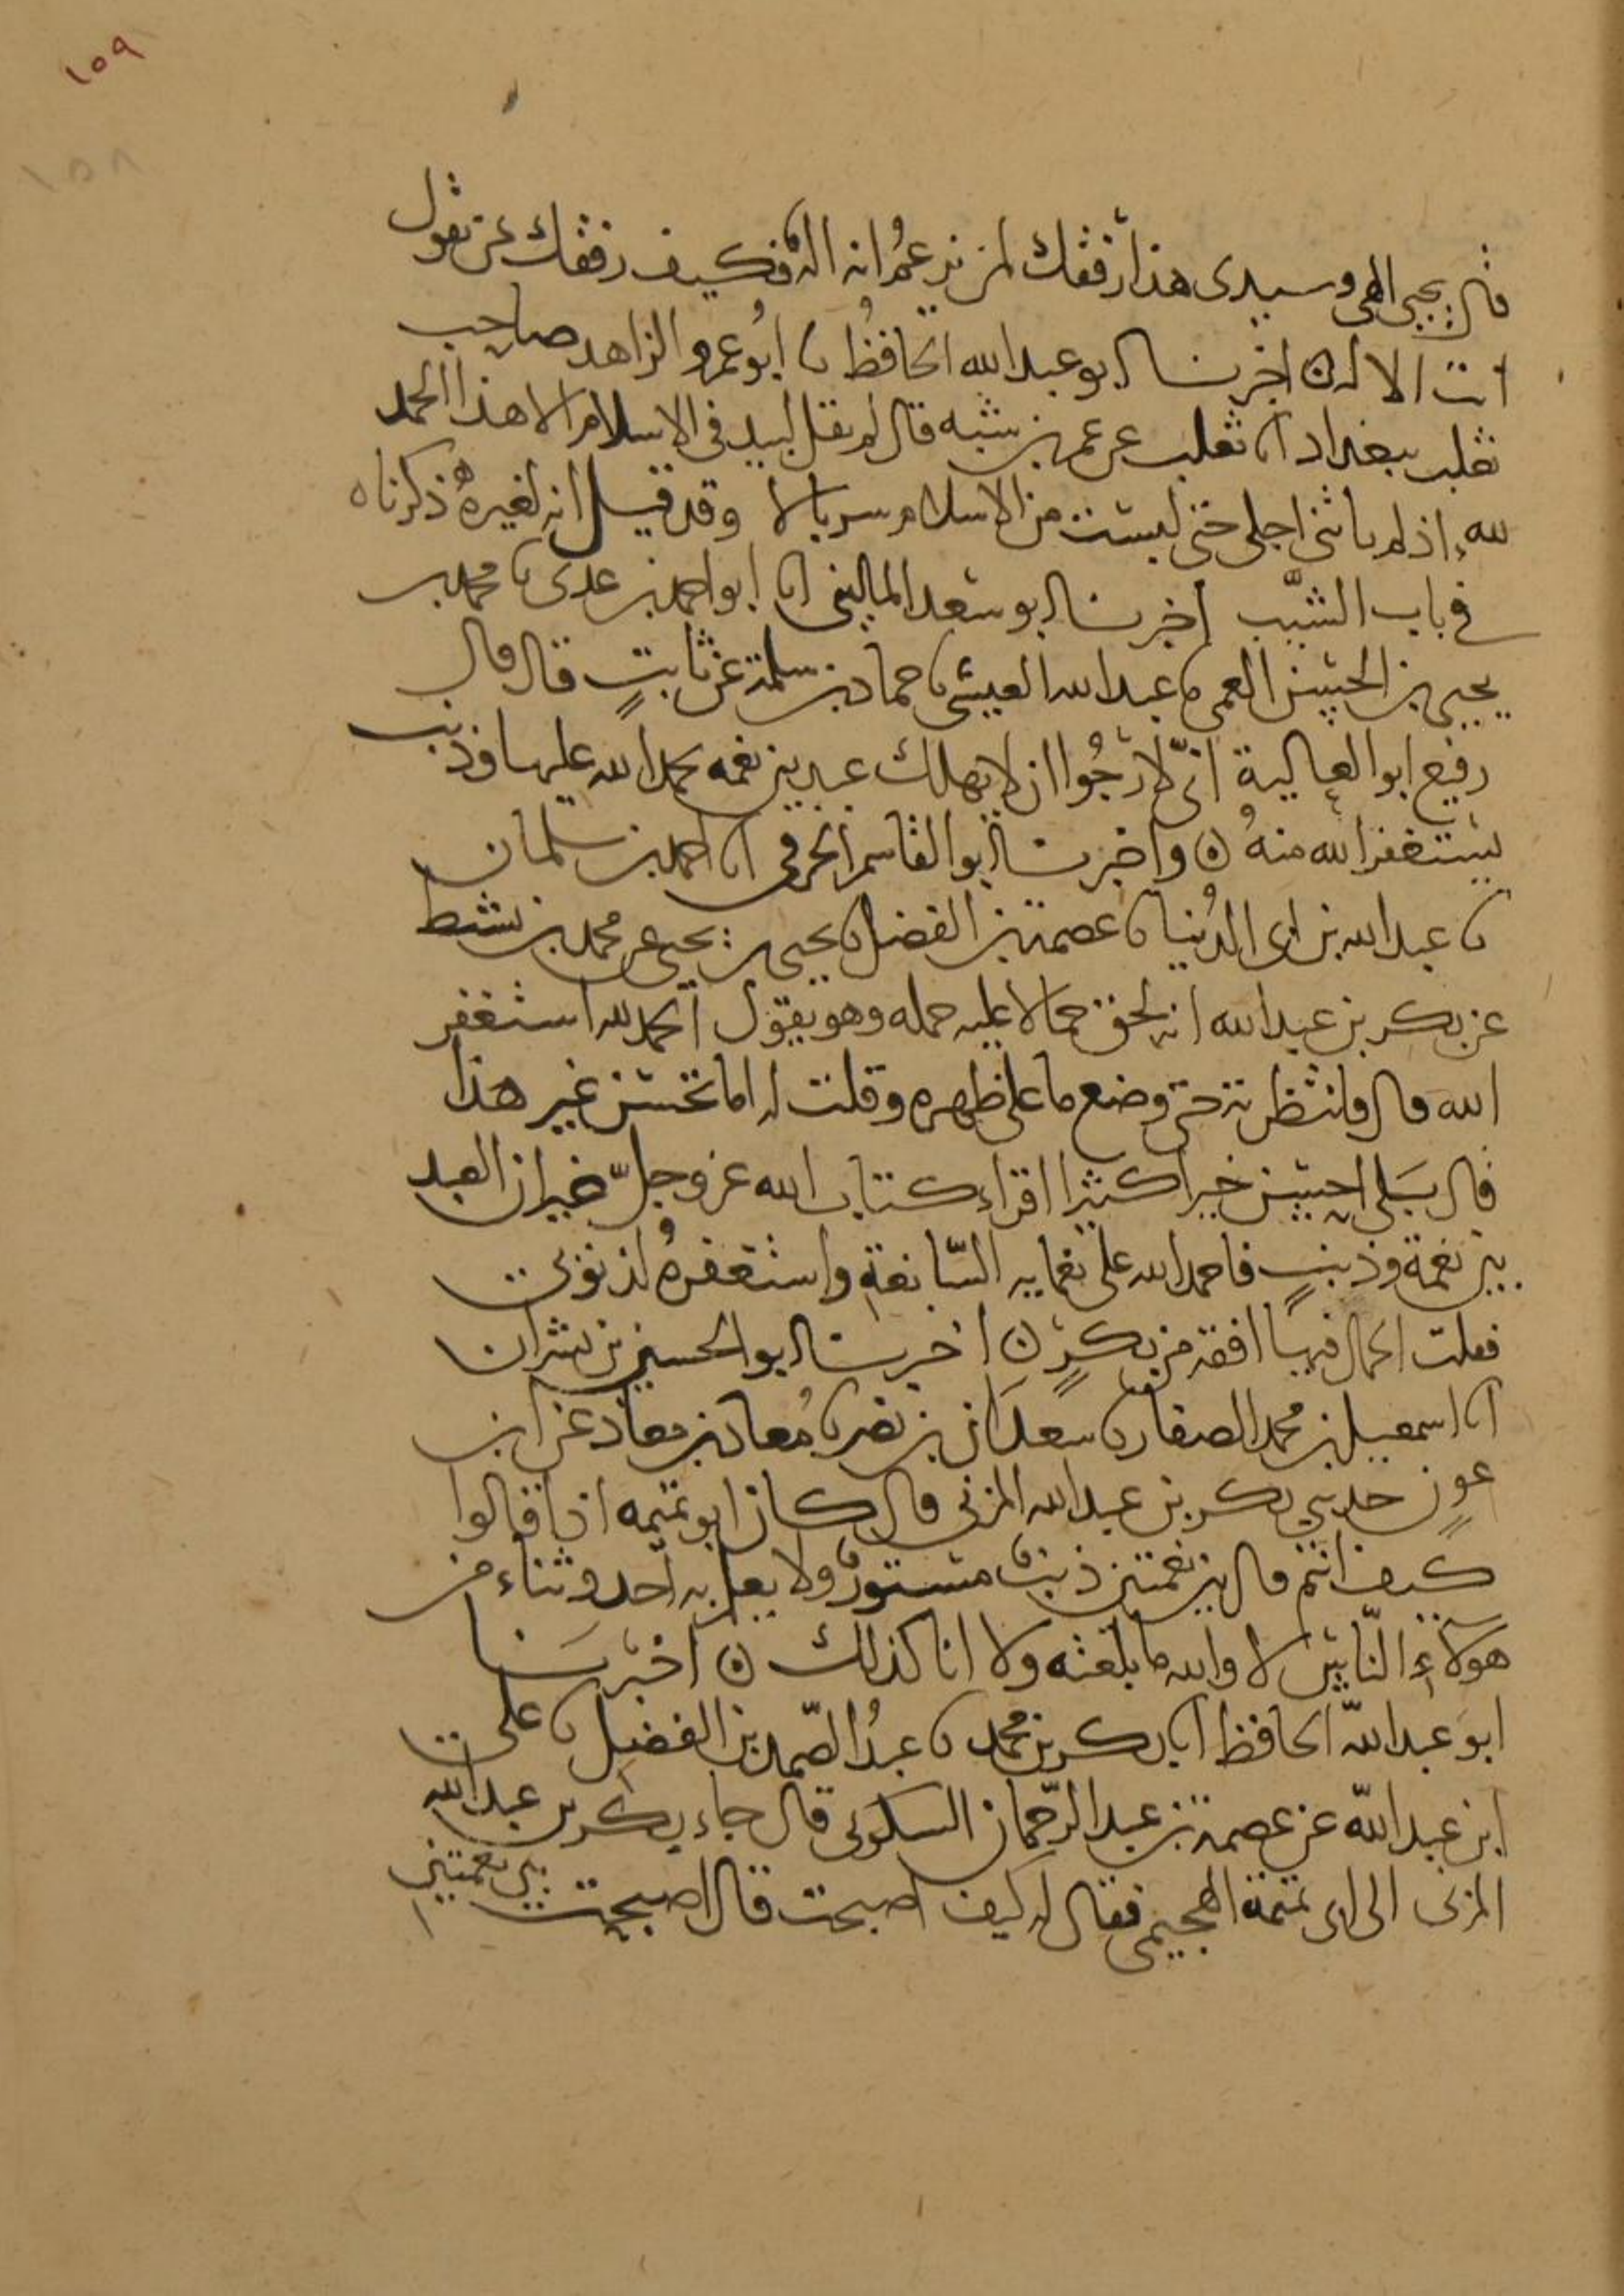 ١٥٩
١٥٨
قال يحيى الهى وسيدى هذا رفقك لمن يزعم انه اله فكيف رفقك بمن يقول
انت الاله ن اخبرنا ابو عبد الله الحافظ نا ابو عمر الزاهد صاحب
ثعلب ببغداد نا ثعلب عن عمر بن شبه قال لم يقل لبيد فى الاسلام الا هذا الحمد
لله اذ لم ياتنى اجلى حتى لبست من الاسلام سربالا وقد قيل انه لغيره ذكرناه
فى باب الشيب اخبرنا ابو سعد المالينى انا ابو احمد بن عدى نا محمد بن
يحيى بن الحسين العمى نا عبيد الله العيشى نا حماد بن سلمة عن ثابت قال قال
رفيع ابو العالية انى لارجوا ان لا يهلك عبد بين نعمه يحمد الله عليها وذنب
يستغفر الله منه ن واخبرنا ابو القاسم الحرفى انا احمد بن سلمان
نا عبد الله بن ابى الدنيا نا عصمة بن الفضل نا يحيى بن يحيى عن محمد بن نشيط
عن بكر بن عبد الله انه لحق حمالا عليه حمله وهو يقول الحمد لله استغفر
الله قال فانتظرته حتى وضع ما على ظهره وقلت له اما تحسن غير هذا
قال بلى احسن خيرا كثيرا اقراء كتاب الله عز وجل غير ان العبد
بين نعمة وذنب فاحمد الله على نعمايه السابغة واستغفره لذنوبى
فقلت الحمال افقه من بكر ن اخبرنا ابو الحسين بن بشران
انا اسمعيل بن محمد الصفار نا سعدان بن نصر نا معاذ بن معاذ عن ابن
عون حدثنى بكر بن عبد الله المزنى قال كان ابو تميمه اذا قالوا
كيف انتم قال بين نعمتين ذنب مستور ولا يعلم به احد وثناء من
هولاء الناس لا والله ما بلغته ولا انا كذلك ن اخبرنا
ابو عبد الله الحافظ انا بكر بن محمد نا عبد الصمد بن الفضل نا على
ابن عبد الله عن عصمة بن عبد الرحمان السكونى قال جاء بكر بن عبد الله
المزنى الى ابى تميمة الهجيمى فقال له كيف اصبحت قال اصبحت بين نعمتين